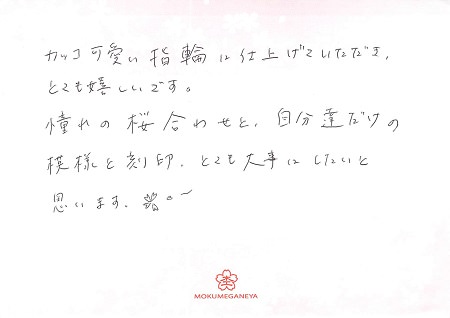 カッコ可愛い指輪に仕上げていただき、
とても嬉しいです。
憧れの桜合わせと、自分達だけの
模様と刻印、とても大事にしたいと
思います。
MOKUMEGANEYA